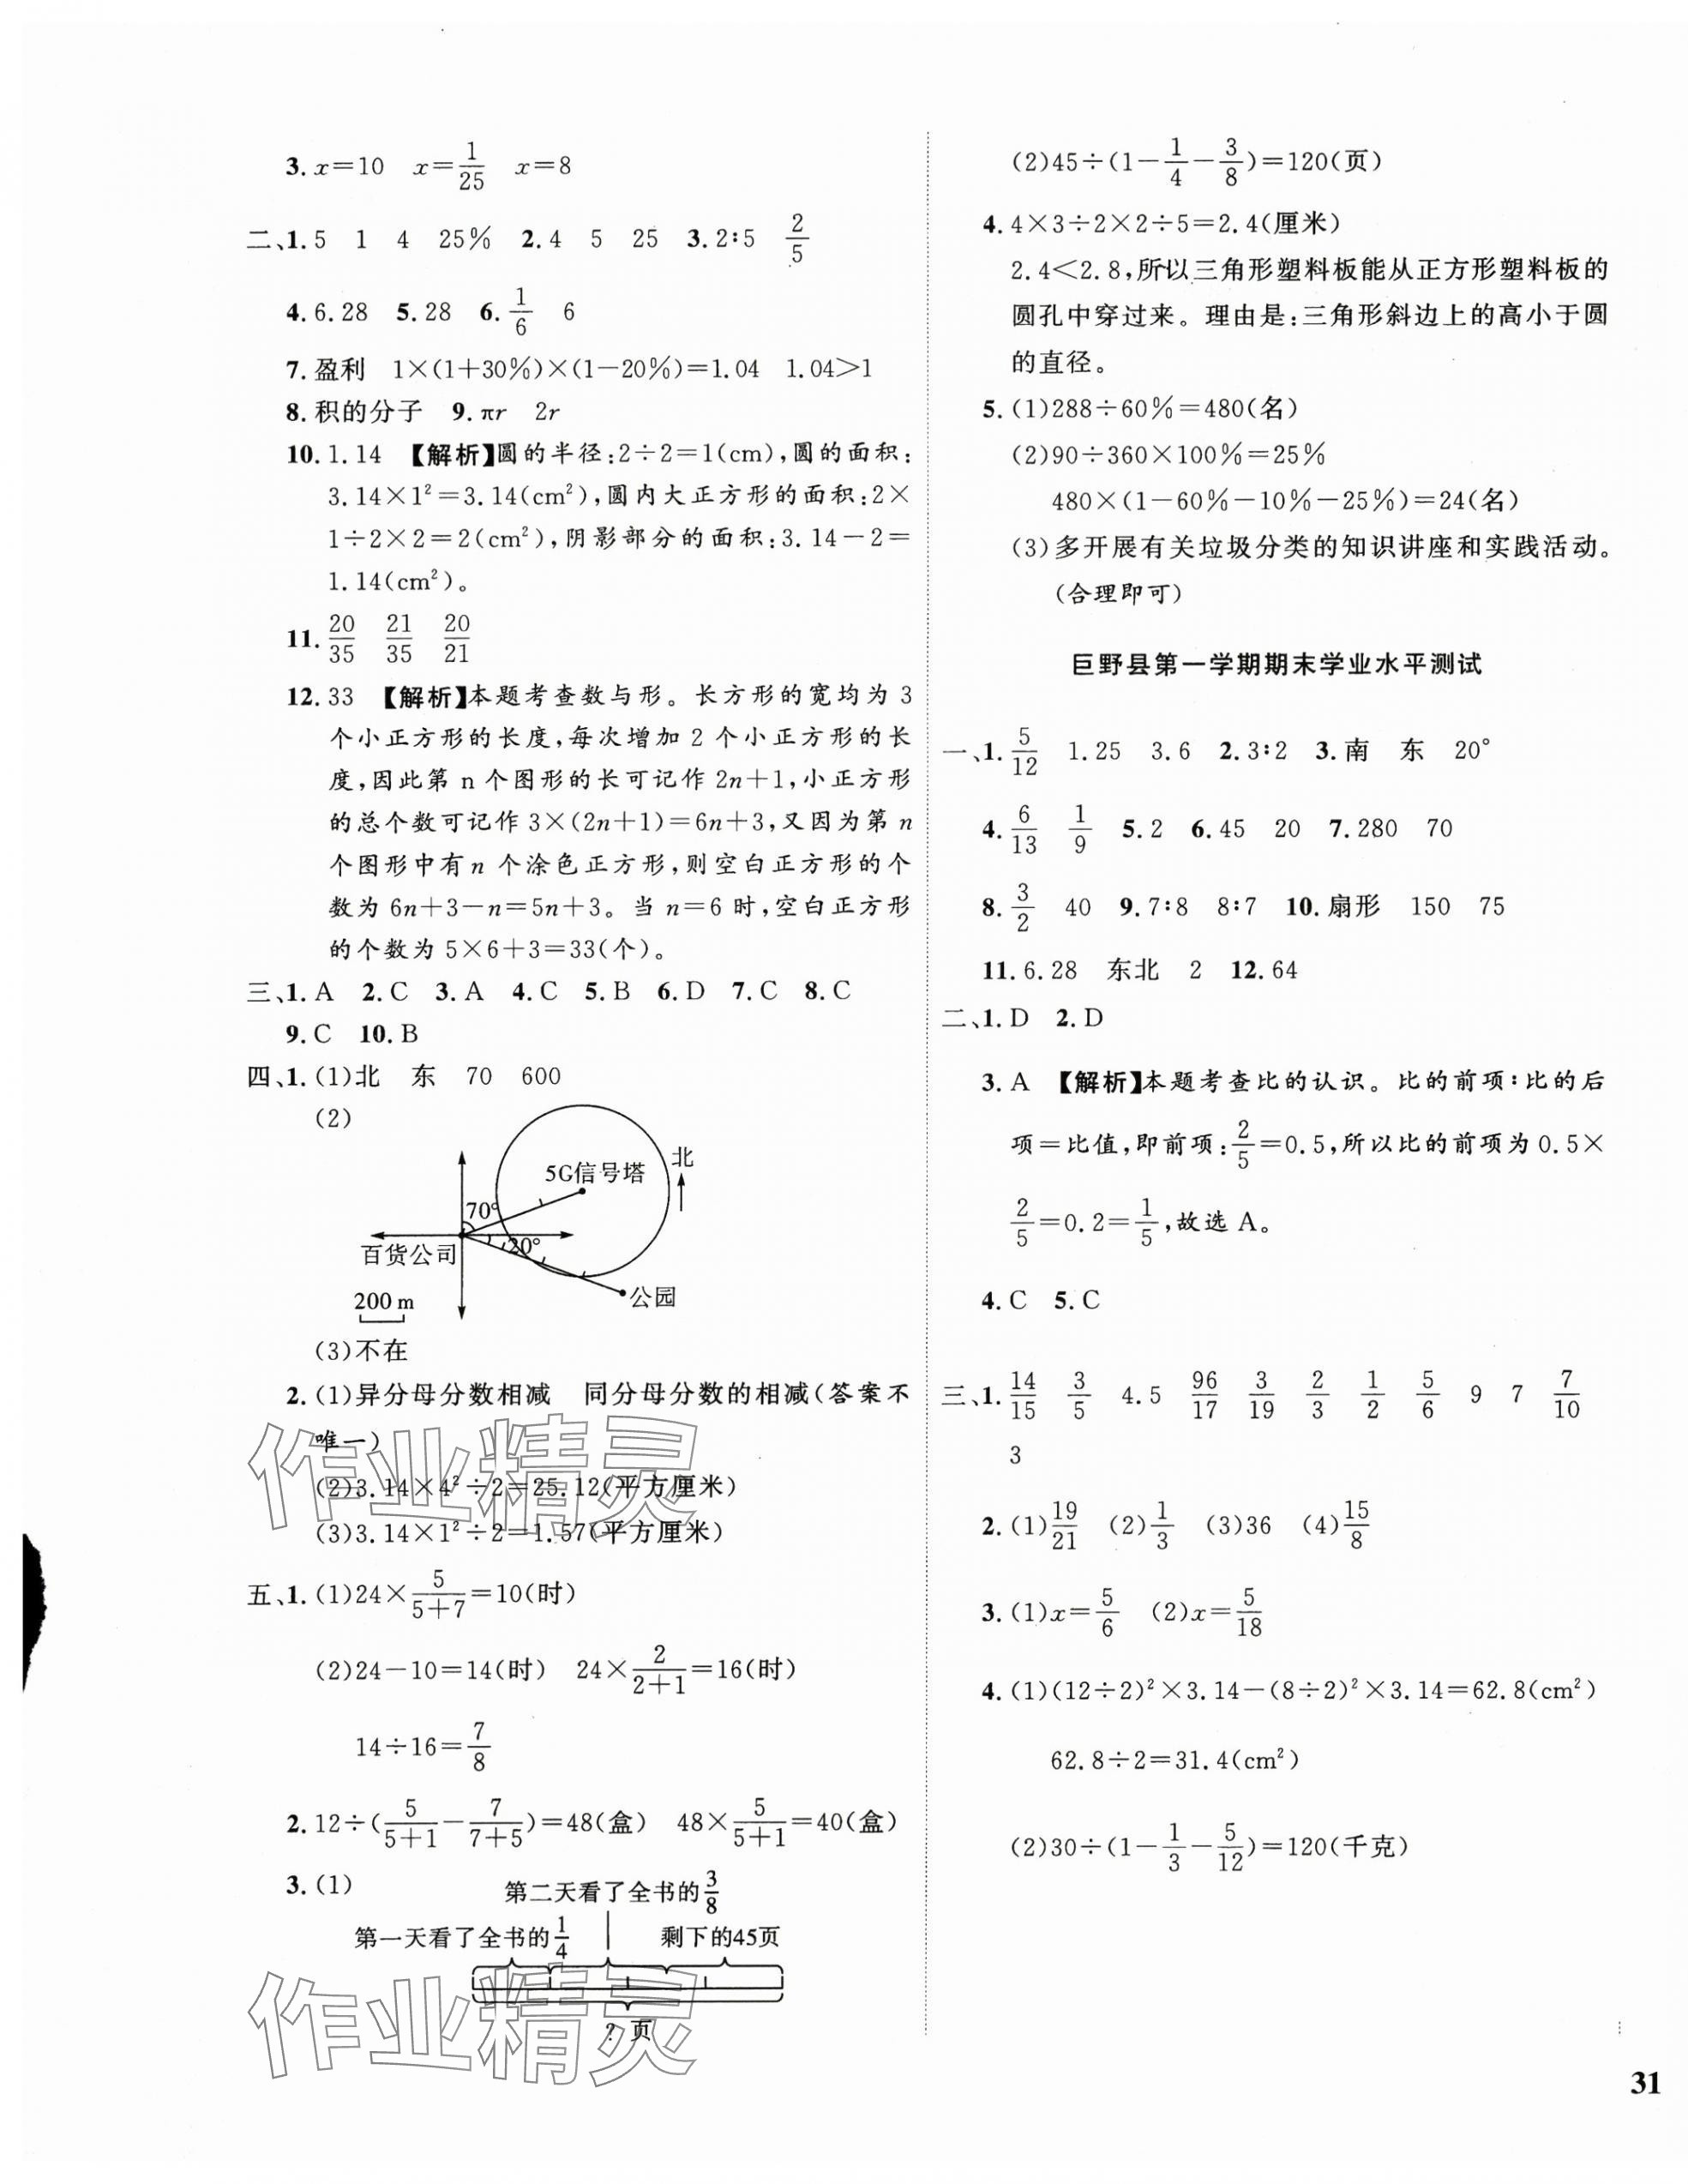 3. x=10 x=1/25 x=8
二、1. 5 1 4 25% 2. 4 5 25 3. 2∶5 2/5
4. 6.28 5. 28 6. 1/6 6
7. 盈利 1×(1+30%)×(1-20%)=1.04 1.04>1
8. 积的分子 9. πr 2r
10. 1.14 【解析】圆的半径:2÷2=1(cm),圆的面积:
3.14×1²=3.14(cm²),圆内大正方形的面积:2×
1÷2×2=2(cm²),阴影部分的面积:3.14-2=
1.14(cm²)。
11. 20/35 21/35 20/21
12. 33 【解析】本题考查数与形。长方形的宽均为3
个小正方形的长度,每次增加2个小正方形的长
度,因此第n个图形的长可记作2n+1,小正方形
的总个数可记作3×(2n+1)=6n+3,又因为第n
个图形中有n个涂色正方形,则空白正方形的个
数为6n+3-n=5n+3。当n=6时,空白正方形
的个数为5×6+3=33(个)。
三、1. A 2. C 3. A 4. C 5. B 6. D 7. C 8. C
9. C 10. B
四、1. (1)北 东 70 600
(2)
北
5G信号塔
70°
20°
百货公司
公园
200 m
(3)不在
2. (1)异分母分数相减 同分母分数的相减(答案不
唯一)
(2)3.14×4²÷2=25.12(平方厘米)
(3)3.14×1²÷2=1.57(平方厘米)
五、1. (1)24×5/(5+7)=10(时)
(2)24-10=14(时) 24×2/(2+1)=16(时)
14÷16=7/8
2. 12÷(5/(5+1)-7/(7+5))=48(盒) 48×5/(5+1)=40(盒)
3. (1)
第二天看了全书的3/8
第一天看了全书的1/4 剩下的45页
? 页
作业精灵
作业精灵
(2)45÷(1-1/4-3/8)=120(页)
4. 4×3÷2×2÷5=2.4(厘米)
2.4<2.8,所以三角形塑料板能从正方形塑料板的
圆孔中穿过来。理由是:三角形斜边上的高小于圆
的直径。
5. (1)288÷60%=480(名)
(2)90÷360×100%=25%
480×(1-60%-10%-25%)=24(名)
(3)多开展有关垃圾分类的知识讲座和实践活动。
(合理即可)
巨野县第一学期期末学业水平测试
一、1. 5/12 1.25 3.6 2. 3∶2 3. 南 东 20°
4. 6/13 1/9 5. 2 6. 45 20 7. 280 70
8. 3/2 40 9. 7∶8 8∶7 10. 扇形 150 75
11. 6.28 东北 2 12. 64
二、1. D 2. D
3. A 【解析】本题考查比的认识。比的前项∶比的后
项=比值,即前项∶2/5=0.5,所以比的前项为0.5×
2/5=0.2=1/5,故选A。
4. C 5. C
三、1. 14/15 3/5 4.5 96/17 3/19 2/3 1/2 5/6 9 7 7/10
3
2. (1)19/21 (2)1/3 (3)36 (4)15/8
3. (1)x=5/6 (2)x=5/18
4. (1)(12÷2)²×3.14-(8÷2)²×3.14=62.8(cm²)
62.8÷2=31.4(cm²)
(2)30÷(1-1/3-5/12)=120(千克)
31